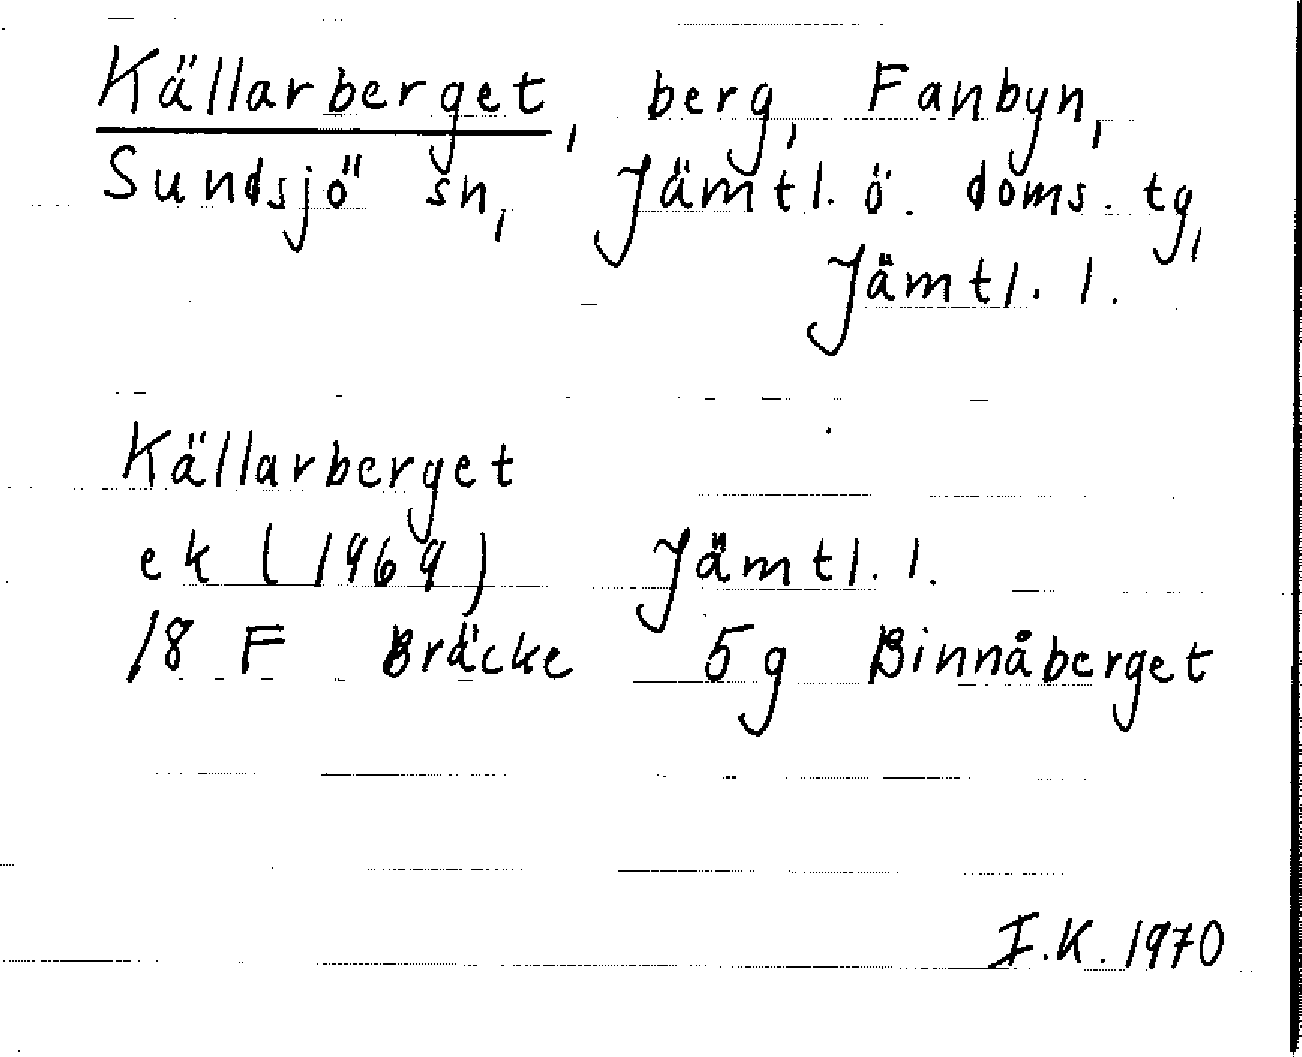 Källarberget, berg, Fanbyn,
Sundsjö sn, Jämtl. ö. doms. tg,
Jämtl. l.
Källarberget
ek (1969) Jämtl. l.
18 F Bräcke 5g Binnåberget
I.K. 1970